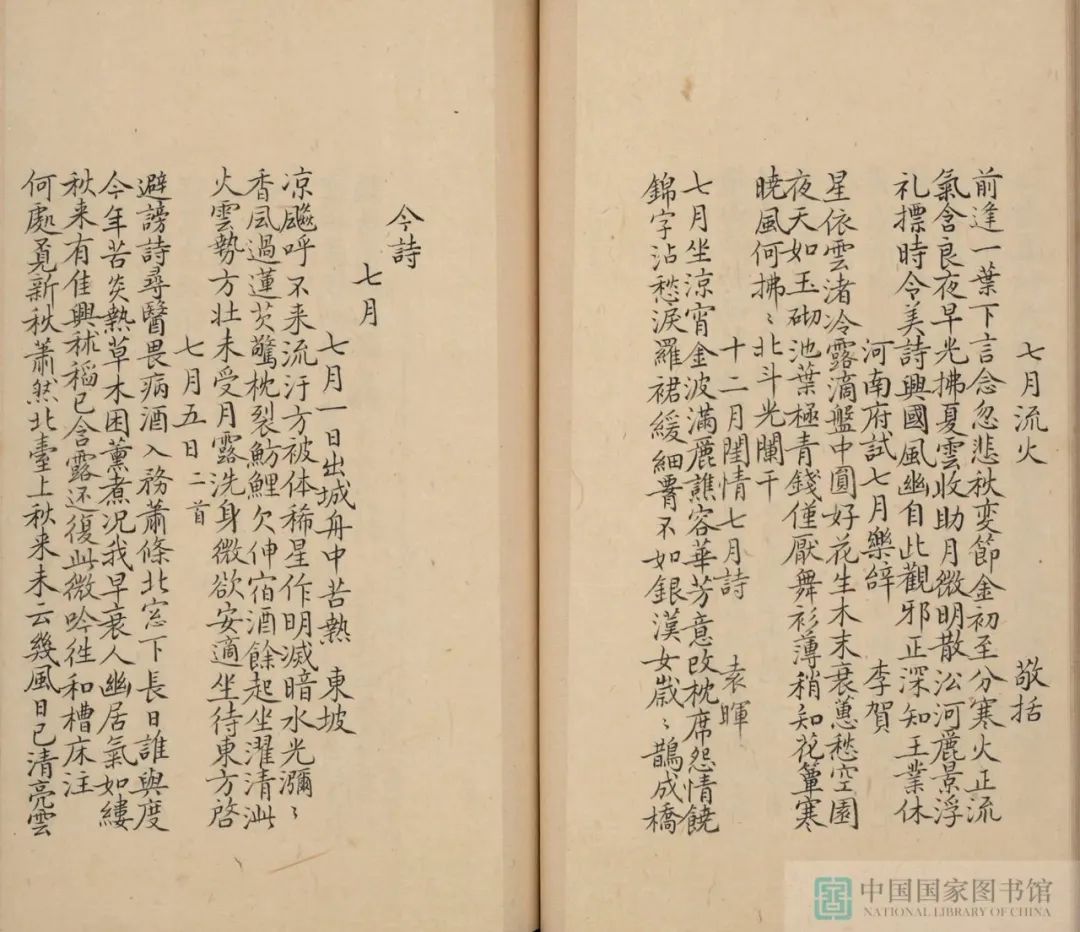 七月流火 敬括
前逢一葉下言念忽悲秋变節金初至分寒火正流
氣含良夜早光拂夏雲收助月微明散㳂河麗景浮
礼摽時令美詩興國風幽自此觀邪正深知王業休
河南府試七月樂辝 李賀
星依雲渚冷露滴盤中圓好花生木末衰蕙愁空園
夜天如玉砌池葉極青錢僅厭舞衫薄稍知花簟寒
暁風何拂〻北斗光闌干
十二月閨情七月詩 袁暉
七月坐涼宵金波滿麗譙容華芳意改枕席怨情饒
錦字沾愁淚羅裙緩細𦝫不如銀漢女歳〻鵲成橋
今詩
七月
七月一日出城舟中苦熱 東坡
凉飈呼不来流汙方被体稀星作明滅暗水光瀰〻
香風過蓮芡驚枕裂魴鯉欠伸宿酒餘起坐濯清泚
火雲勢方壮未受月露洗身微欲安適坐待東方啓
七月五日 二首
避謗詩尋醫畏病酒入務蕭條北窓下長日誰與度
今年苦炎熱草木困薫煮况我早衰人幽居氣如縷
秋来有佳興秫稻已含露还復此微吟徃和糟床注
何處覔新秋蕭然北臺上秋来未云幾風日已清亮雲
中国国家图书馆
NATIONAL LIBRARY OF CHINA